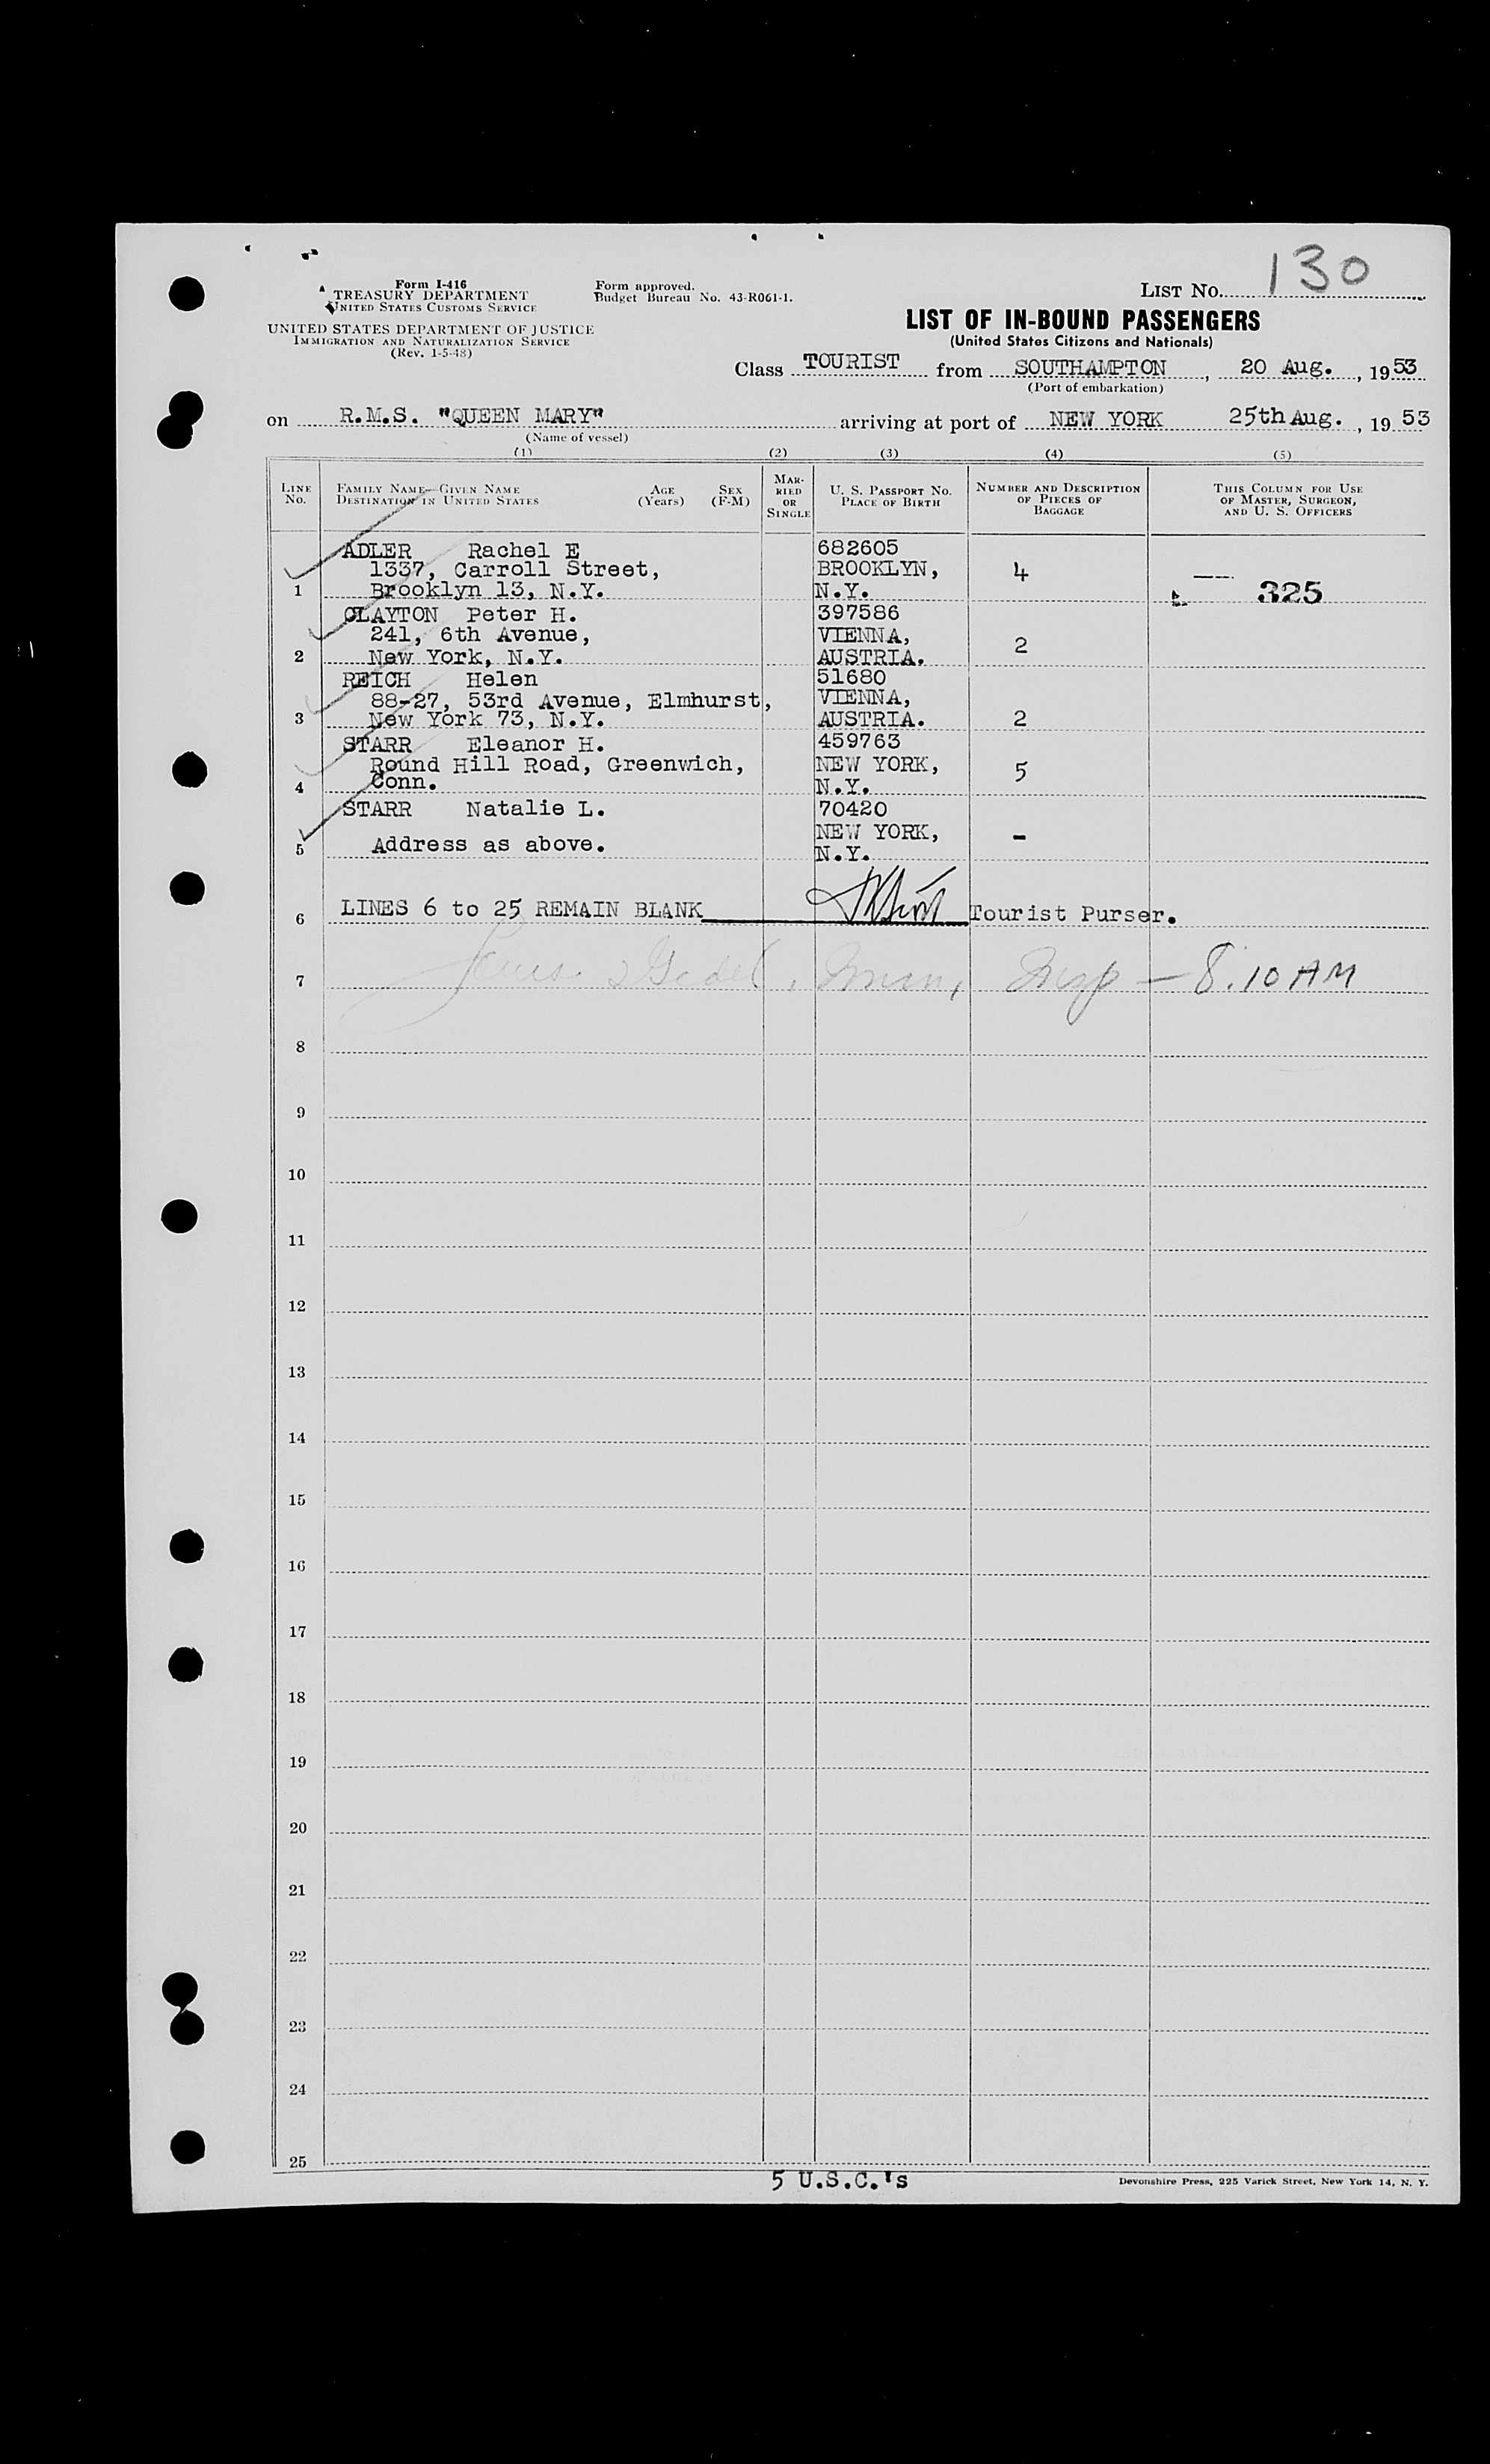 130
Form I-416
TREASURY DEPARTMENT
UNITED STATES CUSTOMS SERVICE
UNITED STATES DEPARTMENT OF JUSTICE
IMMIGRATION AND NATURALIZATION SERVICE
(Rev. 1-5-48)
Form approved.
Budget Bureau No. 43-R061-1.
LIST No.
LIST OF IN-BOUND PASSENGERS
(United States Citizens and Nationals)
Class TOURIST from SOUTHAMPTON, 20 Aug., 1953
(Port of embarkation)
on R.M.S. "QUEEN MARY" arriving at port of NEW YORK 25th Aug., 19 53
(Name of vessel)
(1) (2) (3) (4) (5)
LINE No.
FAMILY NAME—GIVEN NAME
DESTINATION IN UNITED STATES
AGE (Years)
SEX (F-M)
MARRIED OR SINGLE
U. S. PASSPORT No.
PLACE OF BIRTH
NUMBER AND DESCRIPTION
OF PIECES OF
BAGGAGE
THIS COLUMN FOR USE
OF MASTER, SURGEON,
AND U. S. OFFICERS
ADLER Rachel E 682605
1337, Carroll Street, BROOKLYN, 4
1 Brooklyn 13, N.Y. N.Y. 325
CLAYTON Peter H. 397586
241, 6th Avenue, VIENNA,
2 New York, N.Y. AUSTRIA. 2
REICH Helen 51680
88-27, 53rd Avenue, Elmhurst, VIENNA,
3 New York 73, N.Y. AUSTRIA. 2
STARR Eleanor H. 459763
Round Hill Road, Greenwich, NEW YORK, 5
4 Conn. N.Y.
STARR Natalie L. 70420
NEW YORK, -
5 Address as above. N.Y.
6 LINES 6 to 25 REMAIN BLANK Tourist Purser.
7 — 8.10 AM
8
9
10
11
12
13
14
15
16
17
18
19
20
21
22
23
24
25
5 U.S.C.'s
Devonshire Press, 225 Varick Street, New York 14, N. Y.